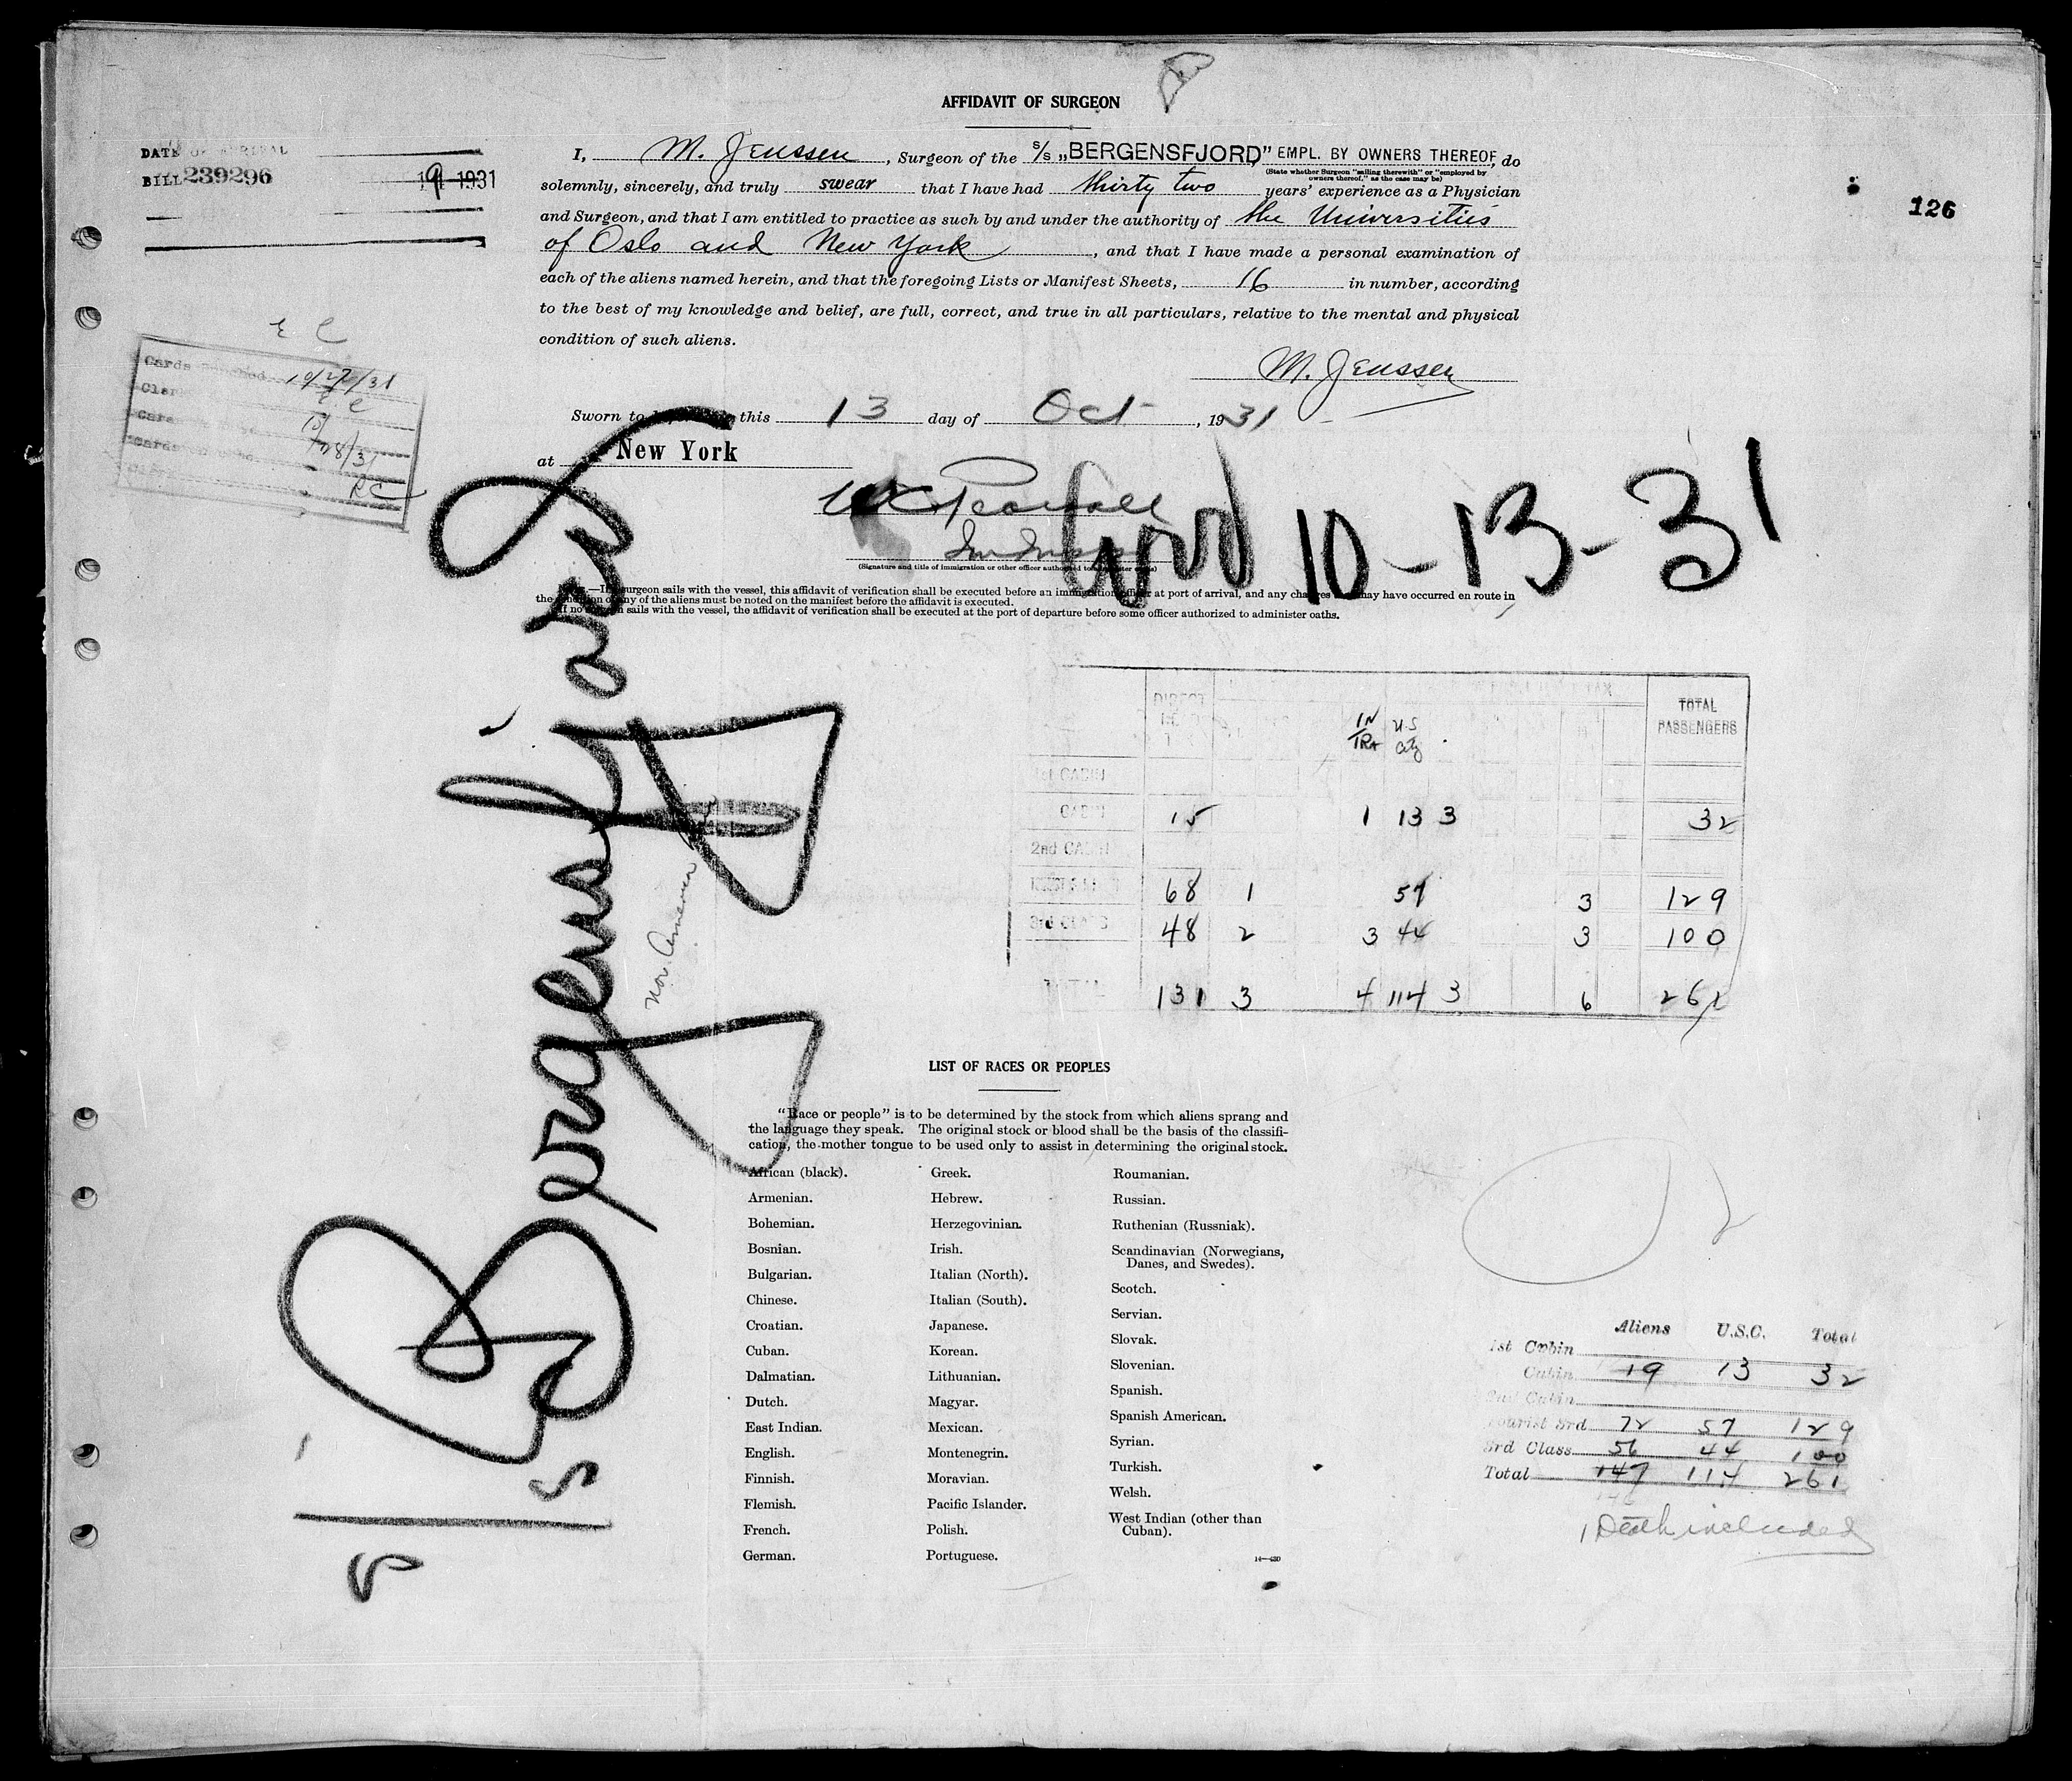 AFFIDAVIT OF SURGEON
DATE OF ARRIVAL
BILL 239296 9 1931
126
I, M. Jenssen, Surgeon of the S/S „BERGENSFJORD" EMPL. BY OWNERS THEREOF, do
(State whether Surgeon "sailing therewith" or "employed by
owners thereof," as the case may be)
solemnly, sincerely, and truly swear that I have had thirty two years' experience as a Physician
and Surgeon, and that I am entitled to practice as such by and under the authority of the Universities
of Oslo and New York, and that I have made a personal examination of
each of the aliens named herein, and that the foregoing Lists or Manifest Sheets, 16 in number, according
to the best of my knowledge and belief, are full, correct, and true in all particulars, relative to the mental and physical
condition of such aliens.
M. Jenssen
E C
Cards 10/27/31
E C
Cards 10/28/31
RC
Sworn to this 13 day of Oct, 1931
at New York
10-13-31
(Signature and title of immigration or other officer authorized to administer oaths)
—If surgeon sails with the vessel, this affidavit of verification shall be executed before an immigration officer at port of arrival, and any changes may have occurred en route in
the condition of any of the aliens must be noted on the manifest before the affidavit is executed.
If no surgeon sails with the vessel, the affidavit of verification shall be executed at the port of departure before some officer authorized to administer oaths.
SS Bergensfjord
Nor. American Line
DIRECT IN TRA U.S. Citz TOTAL PASSENGERS
1st CABIN
CABIN 15 1 13 3 32
2nd CABIN
68 1 57 3 129
3rd CLASS 48 2 3 44 3 100
TOTAL 131 3 4 114 3 6 261
LIST OF RACES OR PEOPLES
"Race or people" is to be determined by the stock from which aliens sprang and
the language they speak. The original stock or blood shall be the basis of the classifi-
cation, the mother tongue to be used only to assist in determining the original stock.
African (black).
Armenian.
Bohemian.
Bosnian.
Bulgarian.
Chinese.
Croatian.
Cuban.
Dalmatian.
Dutch.
East Indian.
English.
Finnish.
Flemish.
French.
German.
Greek.
Hebrew.
Herzegovinian.
Irish.
Italian (North).
Italian (South).
Japanese.
Korean.
Lithuanian.
Magyar.
Mexican.
Montenegrin.
Moravian.
Pacific Islander.
Polish.
Portuguese.
Roumanian.
Russian.
Ruthenian (Russniak).
Scandinavian (Norwegians,
Danes, and Swedes).
Scotch.
Servian.
Slovak.
Slovenian.
Spanish.
Spanish American.
Syrian.
Turkish.
Welsh.
West Indian (other than
Cuban).
Aliens U.S.C. Total
1st Cabin
Cabin 19 13 32
2nd Cabin
Tourist 3rd 72 57 129
3rd Class 56 44 100
Total 147 114 261
1 Death included